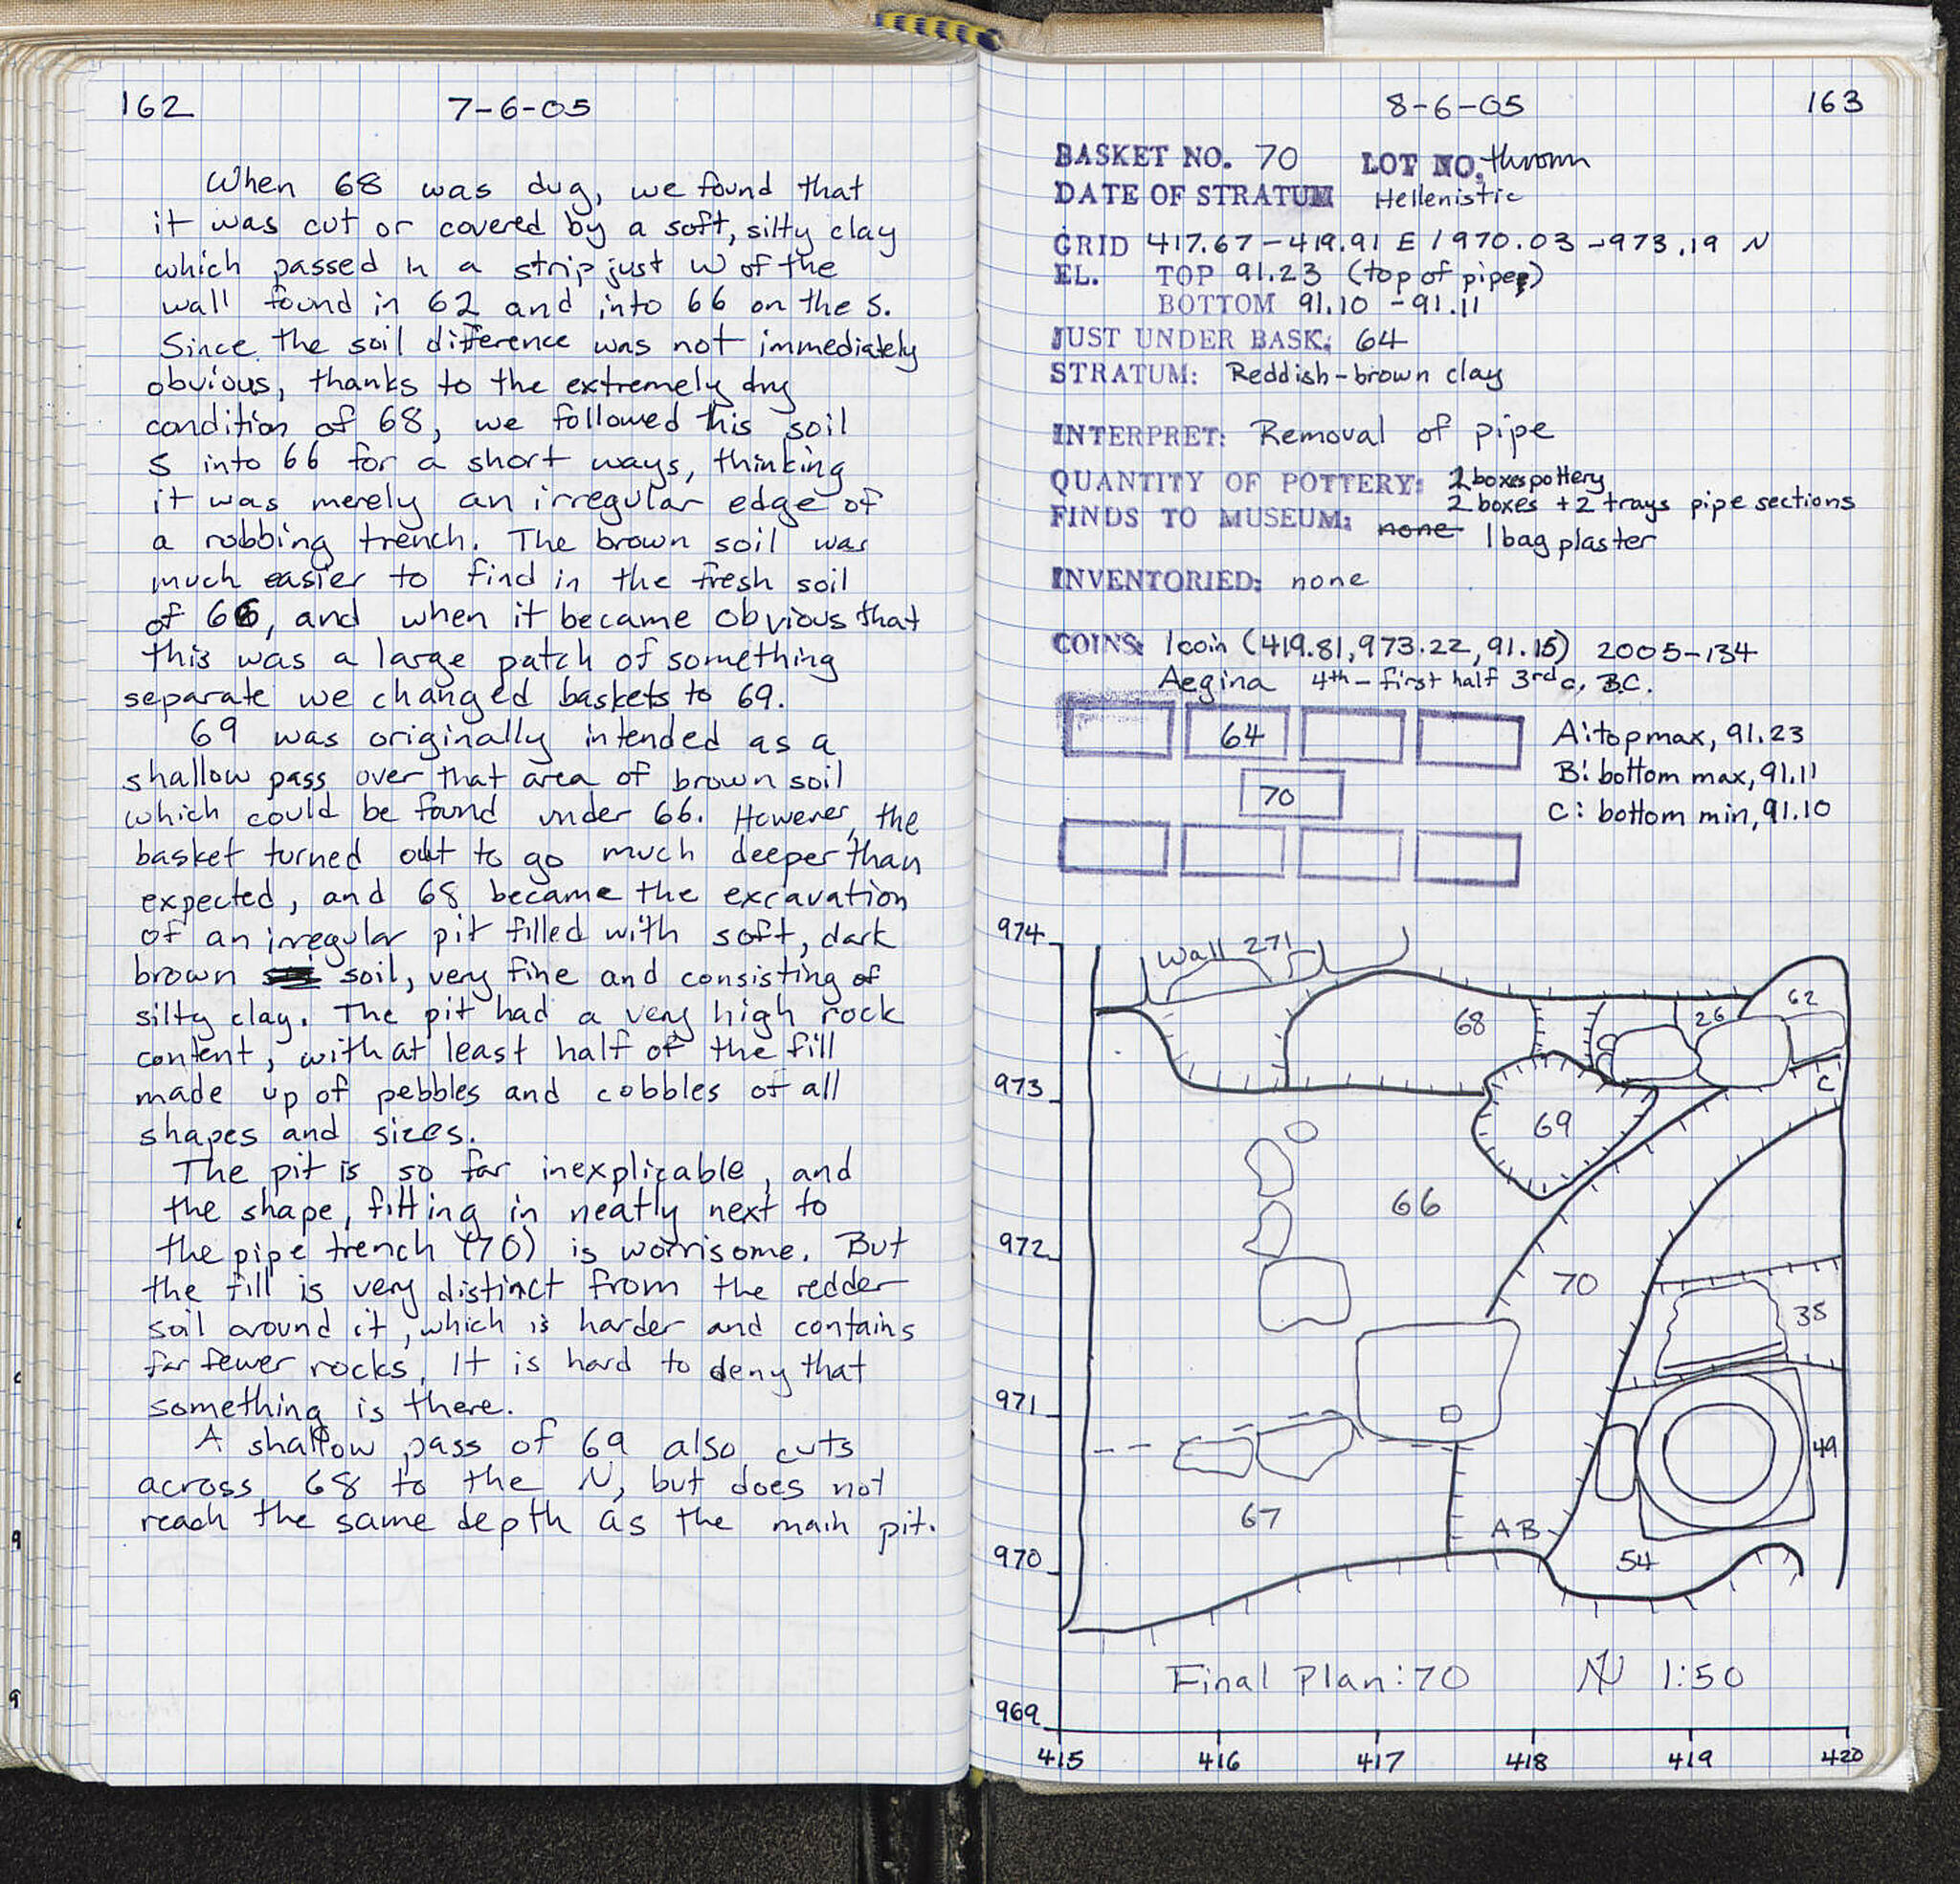 162
7-6-05
When 68 was dug, we found that
it was cut or covered by a soft, silty clay
which passed in a strip just W of the
wall found in 62 and into 66 on the S.
Since the soil difference was not immediately
obvious, thanks to the extremely dry
condition of 68, we followed this soil
S into 66 for a short ways, thinking
it was merely an irregular edge of
a robbing trench. The brown soil was
much easier to find in the fresh soil
of 66, and when it became obvious that
this was a large patch of something
separate we changed baskets to 69.
69 was originally intended as a
shallow pass over that area of brown soil
which could be found under 66. However, the
basket turned out to go much deeper than
expected, and 68 became the excavation
of an irregular pit filled with soft, dark
brown soil, very fine and consisting of
silty clay. The pit had a very high rock
content, with at least half of the fill
made up of pebbles and cobbles of all
shapes and sizes.
The pit is so far inexplicable, and
the shape, fitting in neatly next to
the pipe trench (70) is worrisome. But
the fill is very distinct from the redder
soil around it, which is harder and contains
far fewer rocks. It is hard to deny that
something is there.
A shallow pass of 69 also cuts
across 68 to the N, but does not
reach the same depth as the main pit.
8-6-05
163
BASKET NO. 70 LOT NO. thrown
DATE OF STRATUM Hellenistic
GRID 417.67-419.91 E / 970.03-973.19 N
EL. TOP 91.23 (top of pipe)
BOTTOM 91.10-91.11
JUST UNDER BASK: 64
STRATUM: Reddish-brown clay
INTERPRET: Removal of pipe
QUANTITY OF POTTERY: boxes pottery
2 boxes + 2 trays pipe sections
FINDS TO MUSEUM: none 1 bag plaster
INVENTORIED: none
COINS: 1 coin (419.81, 973.22, 91.15) 2005-134
Aegina 4th - first half 3rd c. B.C.
64
70
A: top max, 91.23
B: bottom max, 91.11
C: bottom min, 91.10
974
Wall 271
68
26
62
973
C
69
66
972
70
35
971
49
67
A B
970
54
Final Plan: 70 N 1:50
969
415 416 417 418 419 420